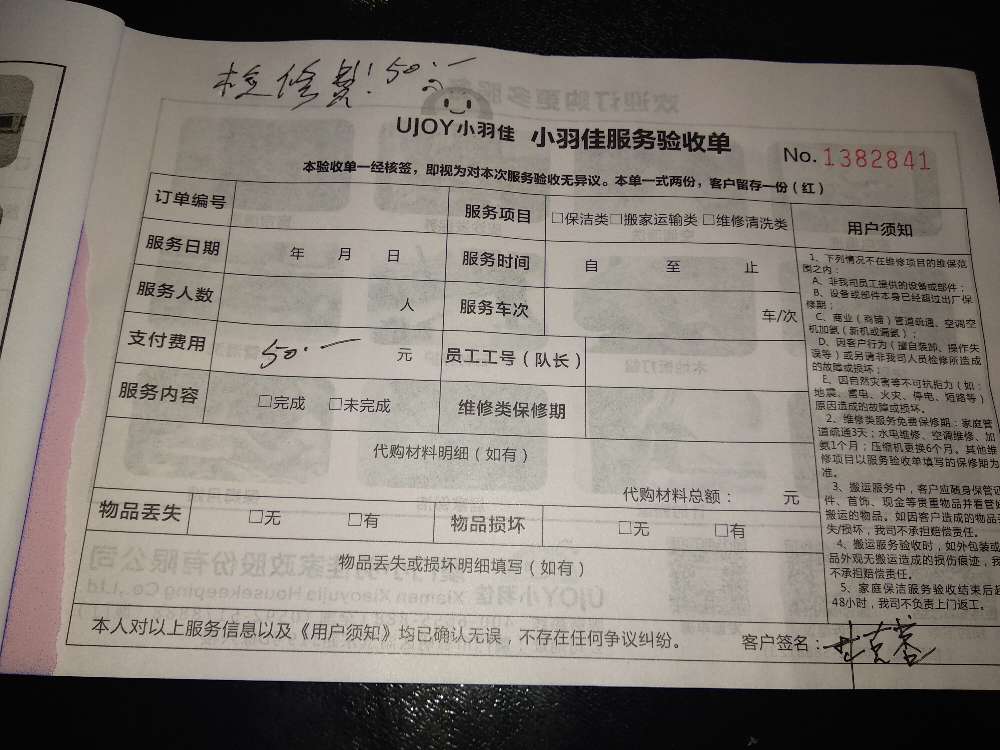 检修费:50.一元
UJOY小羽佳 小羽佳服务验收单
No. 1382841
本验收单一经核签，即视为对本次服务验收无异议。本单一式两份，客户留存一份（红）
订单编号 服务项目 □保洁类□搬家运输类 □维修清洗类
服务日期 年 月 日 服务时间 自 至 止
服务人数 人 服务车次 车/次
支付费用 50.一 元 员工工号（队长）
服务内容 □完成 □未完成 维修类保修期
代购材料明细（如有）
代购材料总额： 元
物品丢失 □无 □有 物品损坏 □无 □有
物品丢失或损坏明细填写（如有）
本人对以上服务信息以及《用户须知》均已确认无误，不存在任何争议纠纷。 客户签名：
用户须知
1、下列情况不在维修项目的维保范
围之内：
A、非我司员工提供的设备或部件；
B、设备或部件本身已经超过出厂保
修期；
C、商业（商铺）管道疏通、空调空
机加氨（新机或漏氨）；
D、因客户行为（擅自装卸、操作失
误等）或另请非我司人员检修所造成
的故障或损坏；
E、因自然灾害等不可抗拒力（如：
地震、雷电、火灾、停电、短路等）
原因造成的故障或损坏。
2、维修类服务免费保修期：家庭管
道疏通3天；水电维修、空调维修、加
氨1个月；压缩机更换6个月。其他维
修项目以服务验收单填写的保修期为
准。
3、搬运服务中，客户应随身保管证
件、首饰、现金等贵重物品并看管好
搬运的物品。如因客户造成的物品丢
失/损坏，我司不承担赔偿责任。
4、搬运服务验收时，如外包装或
品外观无搬运造成的损伤痕迹，我
不承担赔偿责任。
5、家庭保洁服务验收结束后超
48小时，我司不负责上门返工。